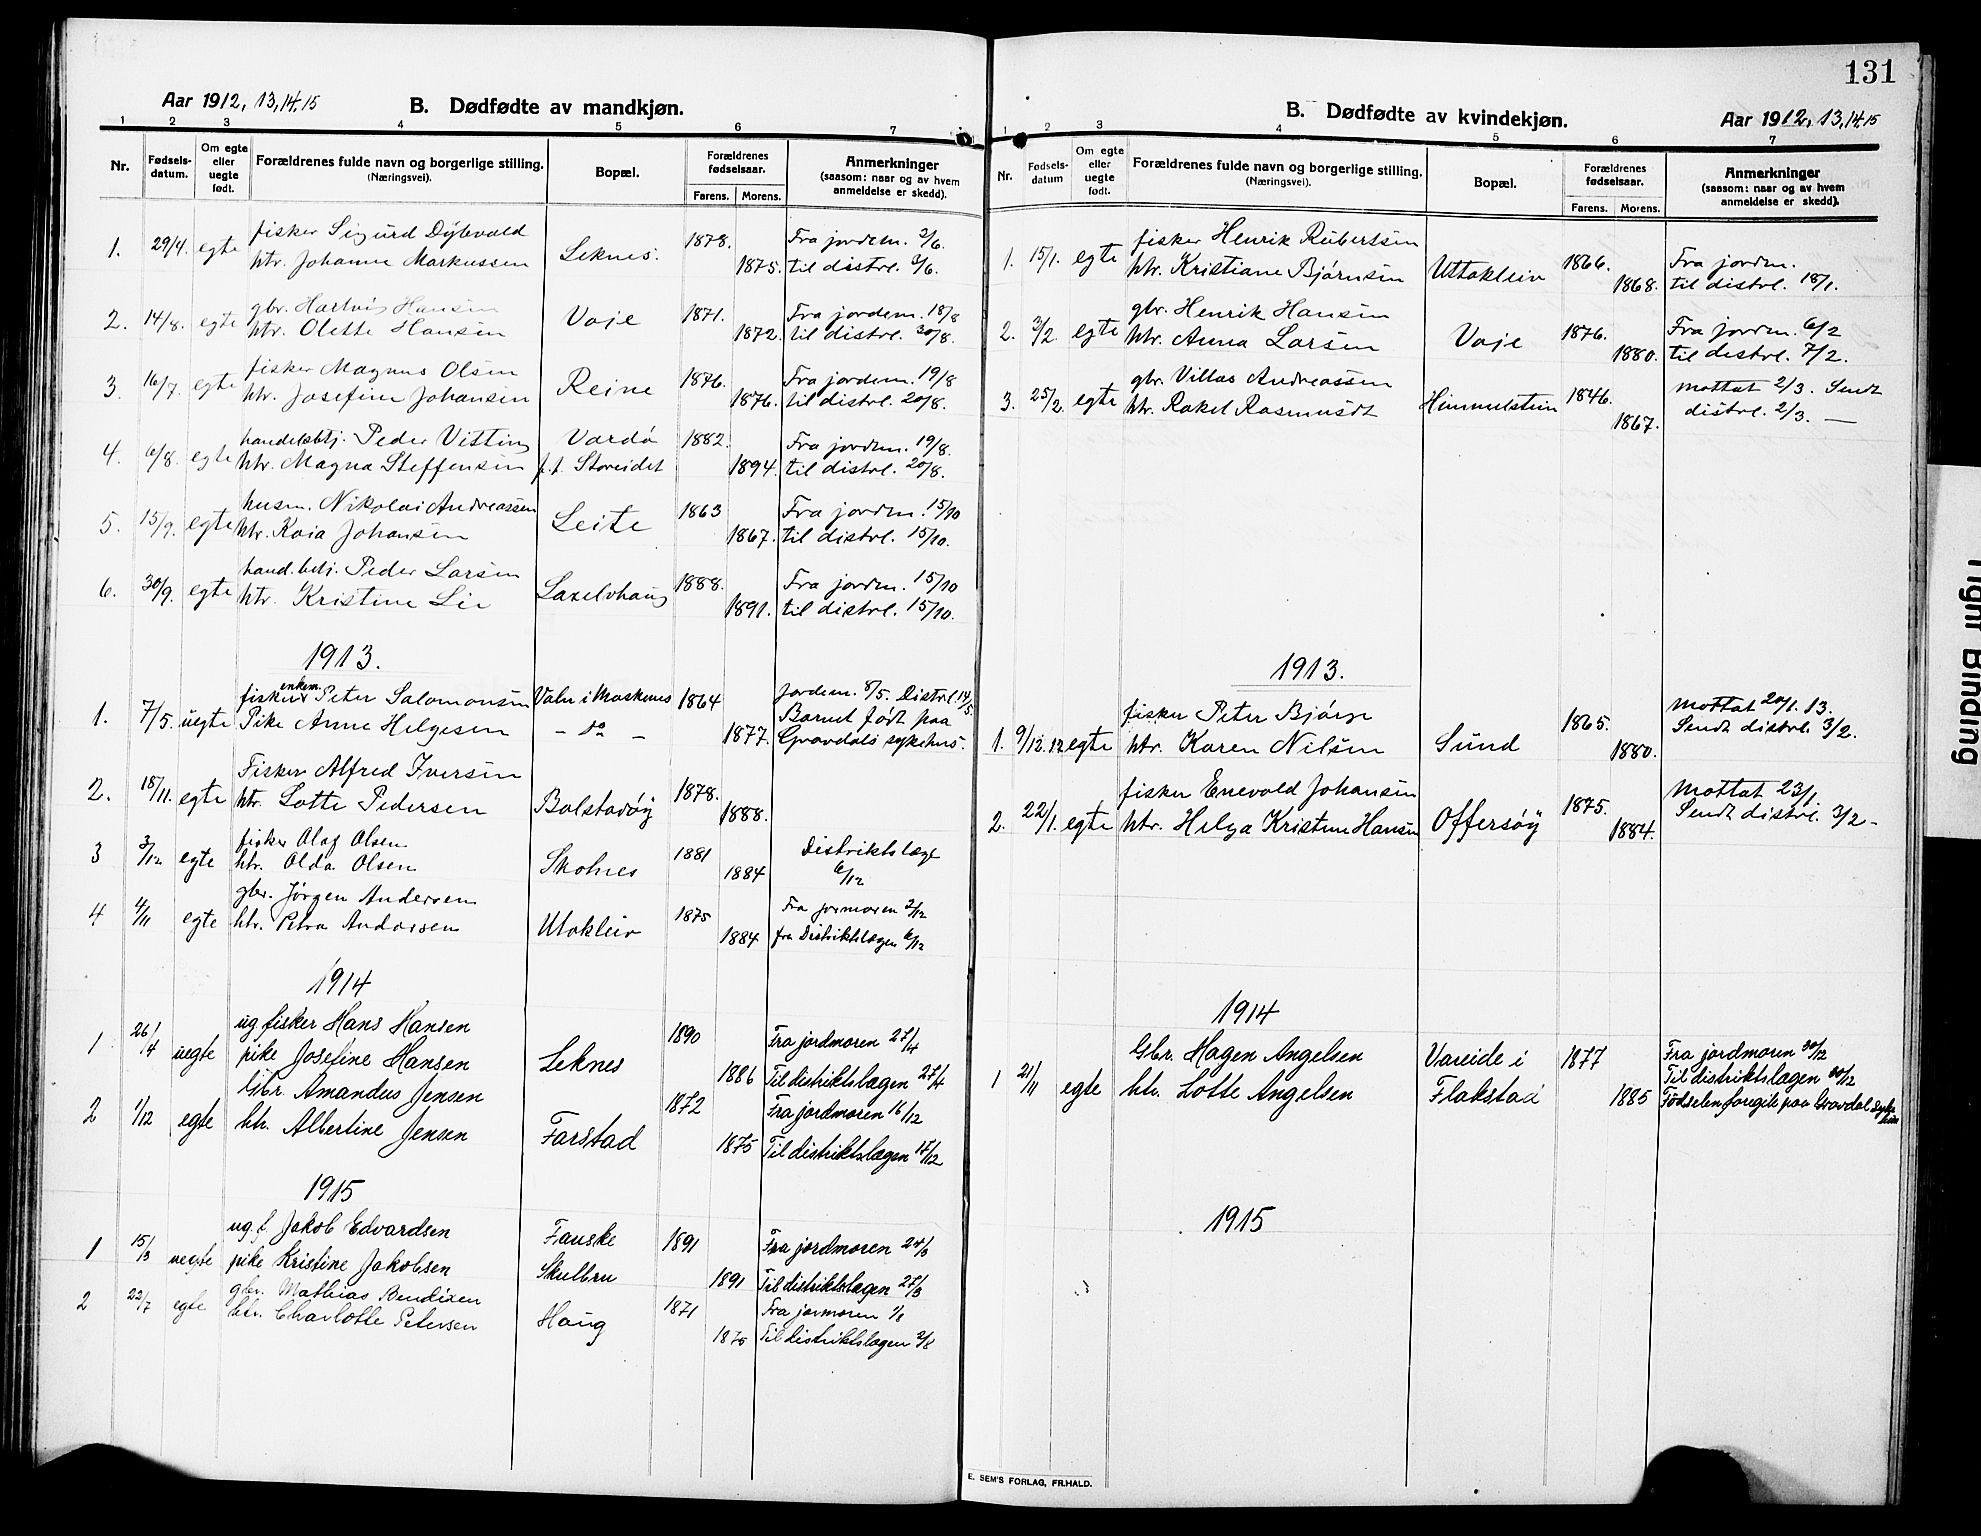 131
Aar 1912, 13, 14, 15
B. Dødfødte av mandkjøn.
1 2 3 4 5 6 7
Nr.
Fødsels-
datum.
Om egte
eller
uegte
født.
Forældrenes fulde navn og borgerlige stilling.
(Næringsvei).
Bopæl.
Forældrenes
fødselsaar.
Farens. Morens.
Anmerkninger
(saasom: naar og av hvem
anmeldelse er skedd).
fisker Sigurd Dybvald 1878. Fra jordem. 3/6.
1. 29/4. egte htr. Johanne Markussen Leknes. 1875. til distrl. 3/6.
gbr. Hartvig Hansen 1871. Fra jordem. 18/8
2. 14/8. egte htr. Olette Hansen Voje 1872. til distrl. 30/8.
fisker Magnus Olsen 1876. Fra jordem. 19/8
3. 16/7. egte htr. Josefine Johansen Reine 1876. til distrl. 20/8.
handelsbtj. Peder Vitting Vardø 1882. Fra jordem. 19/8.
4. 6/8. egte htr. Magna Steffensen f.t. Storeidet 1894. til distrl. 20/8.
husm. Nikolai Andreassen 1863 Fra jordm. 15/10
5. 15/9. egte htr. Kaia Johansen Leite 1867. til distrl. 15/10.
hand.betj. Peder Larsen 1888. Fra jordm. 15/10
6. 30/9. egte htr. Kristine Lie 1891. til distrl. 15/10.
1913.
enkem.
fisker Peter Salomonsen 1864 Jordem. 8/5. Distrl. 14/5.
1. 7/5. uegte Pike Anne Helgesen – do – 1877. Barnet født paa
Gravdals sykehus.
Fisker Alfred Iversen 1878.
2. 18/11. egte htr. Lotte Pedersen Bolstadøy 1888.
fisker Olaf Olsen 1881 Distriktslæge
3 3/12 egte htr. Olda Olsen 1884 6/12
gbr. Jørgen Andersen 1875 Fra jormoren 2/12
4 4/11 egte htr. Petra Andersen Utakleiv 1884 fra Distriktslægen 6/12
1914
ug fisker Hans Hansen 1890 Fra jordmoren 27/4
1 26/4 uegte pike Josefine Hansen Leknes 1886 Til distriktslægen 27/4
Gbr. Amandus Jensen 1872 Fra jordmoren 16/12
2 1/12 egte htr. Albertine Jensen Farstad 1875 Til distriktslægen 17/12
1915
ug f. Jakob Edvardsen Fauske 1891 Fra jordmoren 24/3
1 15/3 uegte pike Kristine Jakobsen Skulbru 1891 Til distriktslægen 27/3
gbr. Mathias Bendixen 1871 Fra jormoren 1/8
2 22/7 egte htr. Charlotte Petersen Haug 1875 Til distriktslægen 2/8
B. Dødfødte av kvindekjøn.
Aar 1912, 13, 14, 15
1 2 3 4 5 6 7
Nr.
Fødsels-
datum
Om egte
eller
uegte
født.
Forældrenes fulde navn og borgerlige stilling.
(Næringsvei).
Bopæl.
Forældrenes
fødselsaar.
Farens. Morens.
Anmerkninger
(saasom: naar og av hvem
anmeldelse er skedd).
fisker Henrik Robertsen 1866. Fra jordm.
1. 15/1. egte htr. Kristiane Bjørnsen Uttakleiv 1868. til distrl. 18/1.
gbr. Henrik Hansen 1876. Fra jordm. 6/2
2. 3/2. egte htr. Anna Larsen Voje 1880. til distrl. 7/2.
gbr. Villas Andreassen 1846. Mottat 2/3. Sendt
3. 25/2. egte htr. Rakel Rasmusdt Himmelstein 1867. distrl. 2/3. –
1913.
fisker Peter Bjørge 1865. Mottat 20/1. 13.
1. 9/12.12 egte htr. Karen Nilsen Sund 1880. Sendt distrl. 3/2.
fisker Enevold Johansen 1875. Mottat 23/1
2. 22/1. egte htr. Helga Kristine Hansen Offersøy 1884. Sendt distrl. 3/2 –
1914
Gbr. Hagen Angelsen Vareide i 1877 Fra jordmoren 30/12
1 21/11 egte htr. Lotte Angelsen Flakstad 1885 Til distriktslægen 30/12
Fødselen foregik paa Gravdal syke
hus
1915
E. SEM'S FORLAG, FR.HALD.
Tight Binding